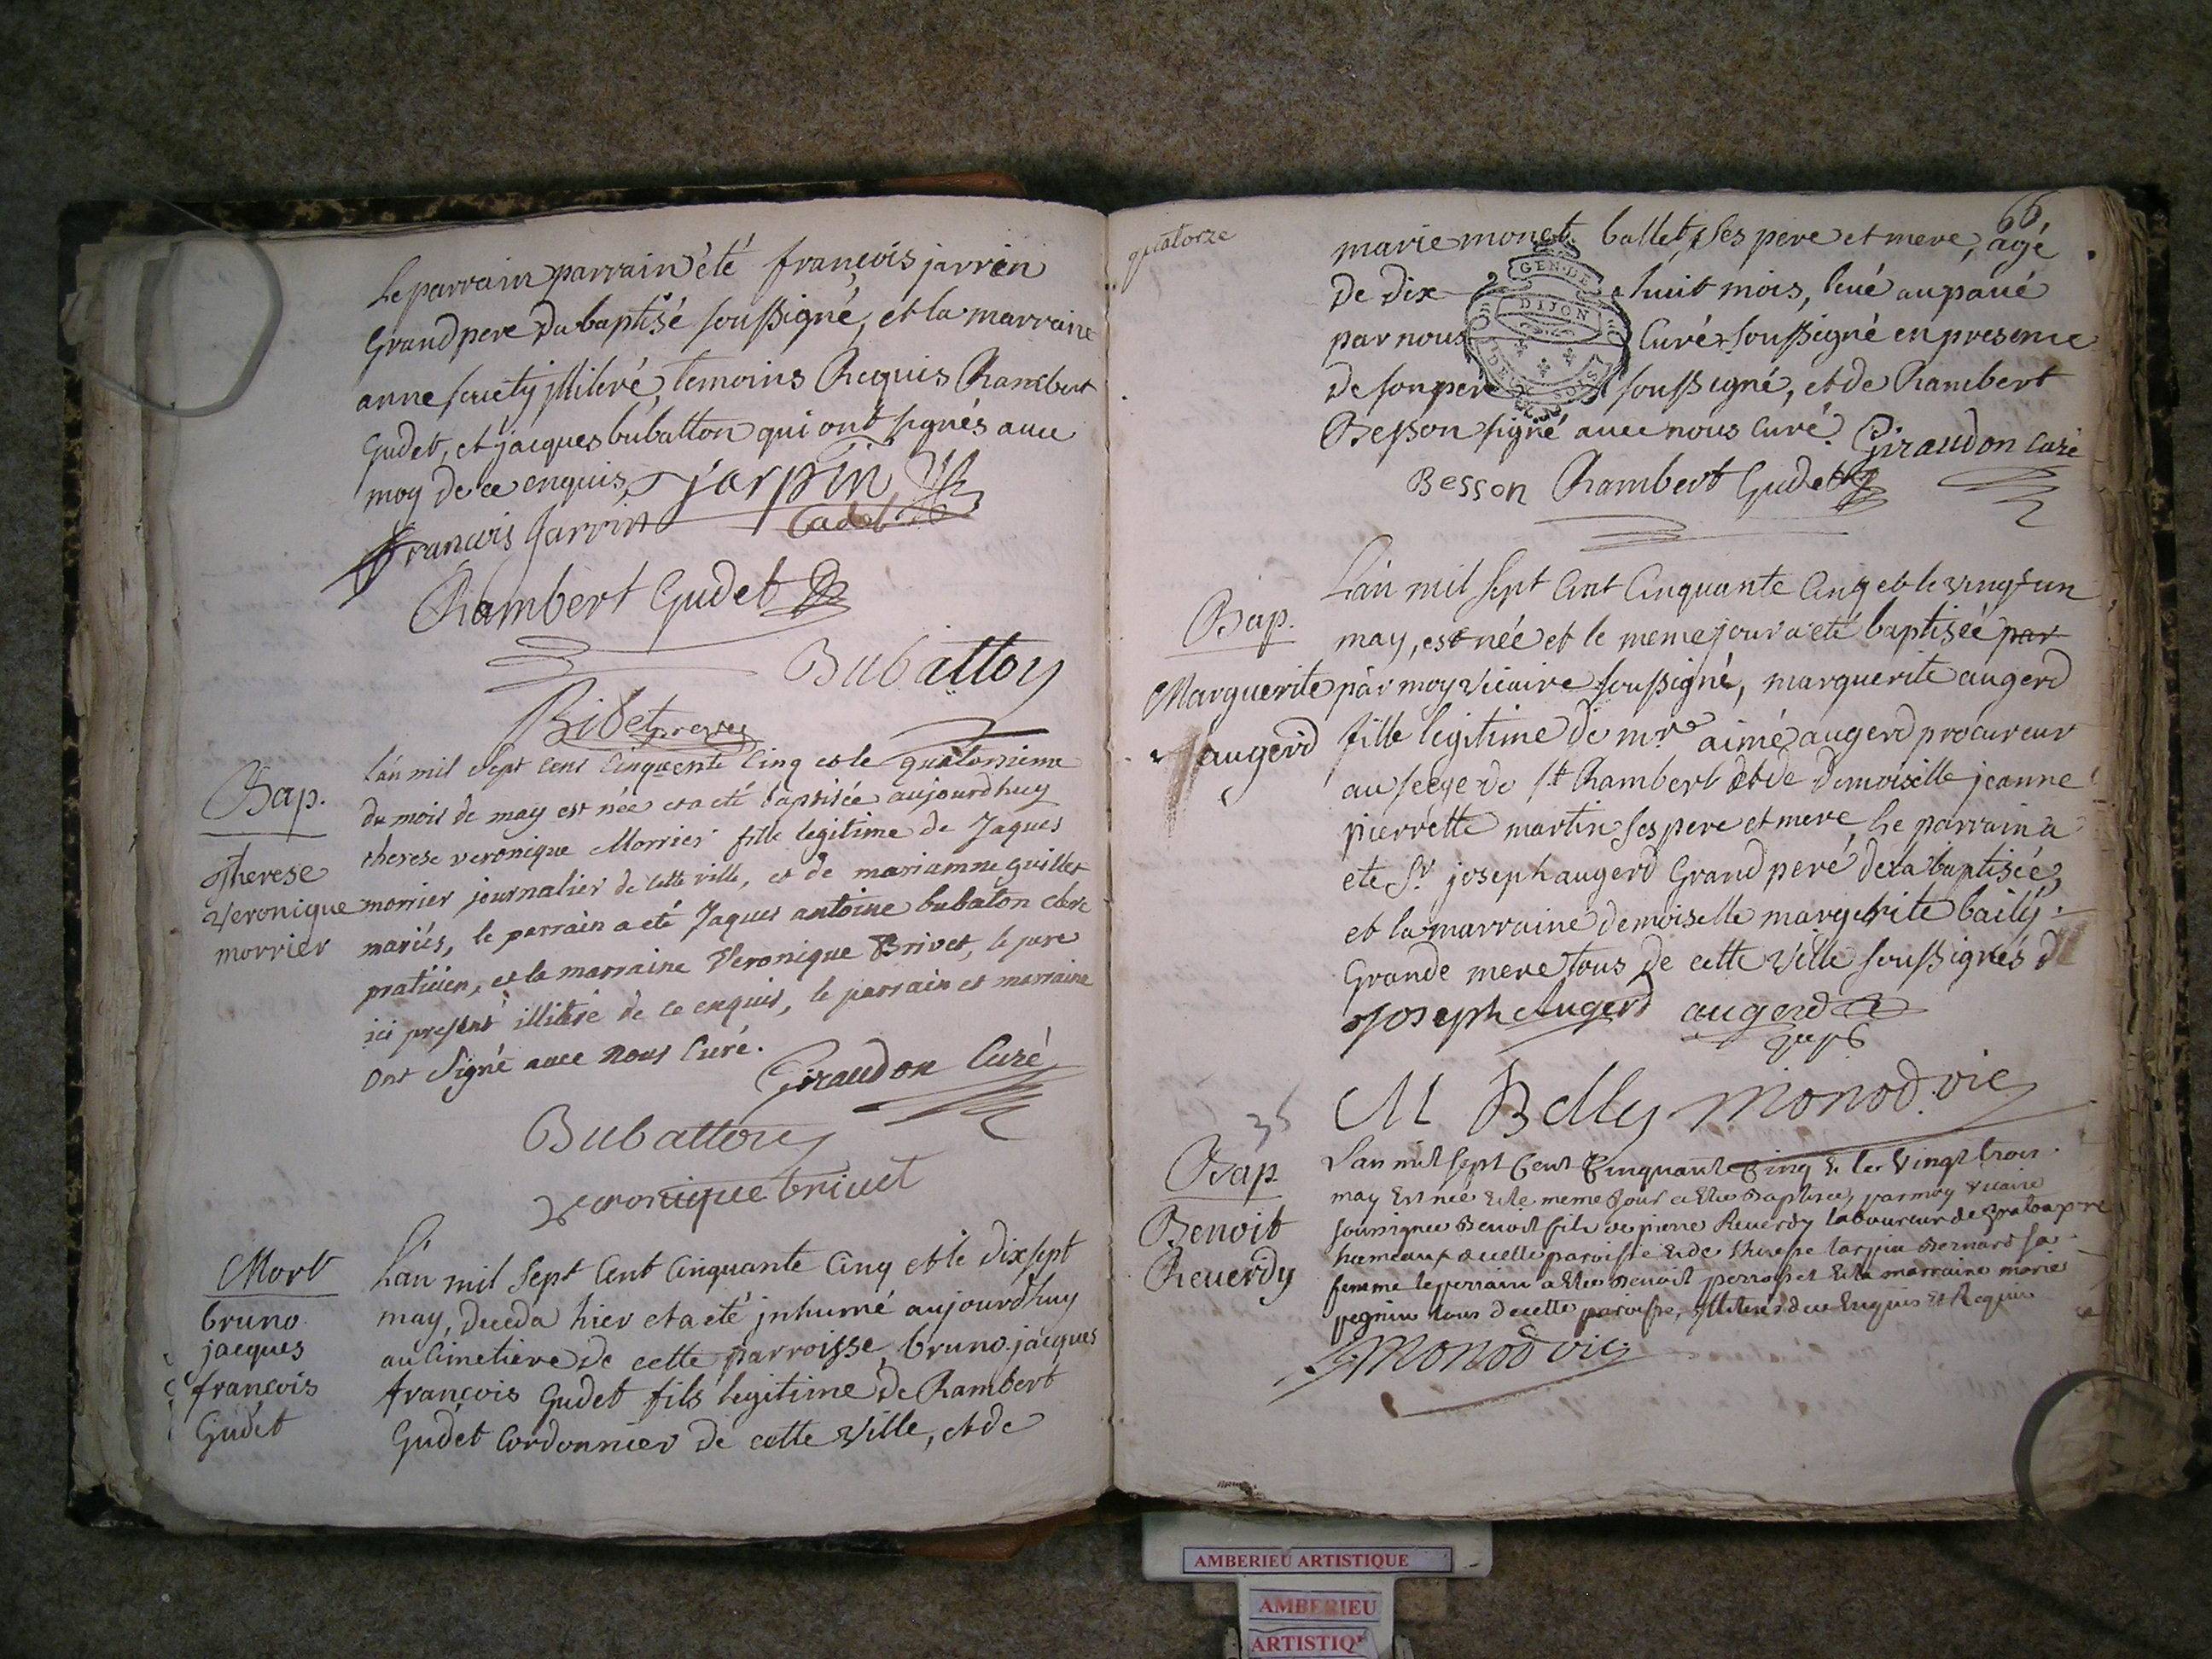 Le parrain parrain été françois jarrin
Grandpere du baptisé soussigné, et la marraine
anne illiteré, temoins Requis Rambert
Gudet, et jacques bubatton qui ont signés avec
moy de ce enquis jarrin
françois Jarrin Cadet
Rambert Gudet
Bubatton
Ribet
Bap.
Therese
Veronique
morrier
L'an mil sept cent cinquente cinq et le quatorsieme
du mois de may est née et a eté baptisée aujourdhuy
therese veronique Morrier fille legitime de Jaques
morrier journalier de cette ville, et de mariamne guillet
mariés, le parrain a eté Jaques antoine bubaton clerc
praticien, et la marraine Veronique Brivet, le pere
ici present illitéré de ce enquis, le parrain et marraine
ont signé avec nous Curé.
Giraudon Curé
Bubatton
veronique brivet
Mort
bruno
jacques
francois
Gudet
L'an mil sept Cent Cinquante Cinq et le dix sept
may, deceda hier et a eté jnhumé aujourdhuy
au Cimetiere de cette parroisse bruno jacques
françois Gudet fils legitime de Rambert
Gudet Cordonnier de cette Ville, et de
quatorze
66
marie monet ballet, ses pere et mere, agé
de dix huit mois, levé au pavé
par nous Curé soussigné en presence
de son pere soussigné, et de Rambert
Besson signé avec nous Curé. Giraudon Curé
Besson Rambert Gudet
GEN.DE
DIJON
Bap.
Marguerite
augerd
L'an mil sept Cent Cinquante Cinq et le vingt un
may, est née et le meme jour a eté baptisée par
par moy vicaire soussigné, marguerite augerd
fille legitime de mre aimé augerd procureur
au seege de st Rambert et de demoiselle jeanne
pierrette martin ses pere et mere, Le parrain a
ete Sr joseph augerd Grand peré de la baptisée,
et la marraine demoiselle margerite bailly
Grande mere tous de cette Ville soussignés
Joseph Augerd augerd
M Belly Monod vic
35
Bap
Benoit
Reverdy
L'an mil sept Cent Cinquante Cinq & le vingt trois
may est née & le meme jour a eté Baptisée par moy vicaire
soussignee Benoit fils de pierre Reverdy laboureur de
hameaux de cette paroisse & de therese Bernard sa
femme le parrain a eté Benoit & la marraine marie
pegnin tous de cette paroisse, illiterés de ce Enquis & Requis
Monod vic
AMBERIEU ARTISTIQUE
AMBERIEU
ARTISTIQ